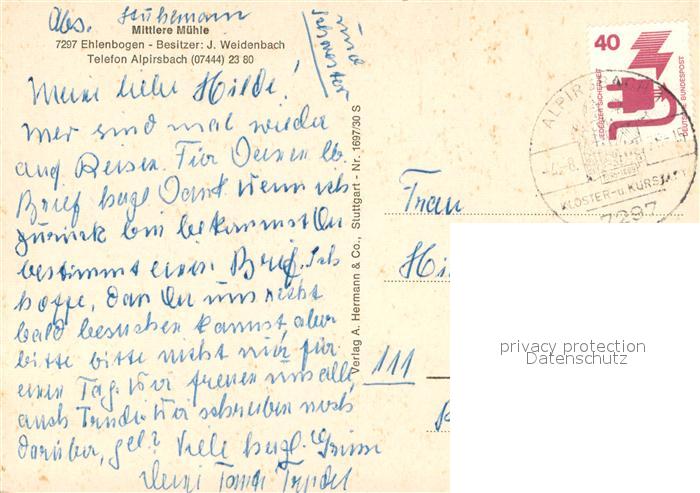 Abs. Stuhemann
und
Schwester
Mittlere Mühle
7297 Ehlenbogen - Besitzer: J. Weidenbach
Telefon Alpirsbach (07444) 23 80
Meine liebe Hilde!
Wir sind mal wieder
auf Reisen. Für Deinen lb.
Brief hzgl Dank wenn ich
zurück bin bekommst Du
bestimmt einen Brief. Ich
hoffe, dan Du uns recht
bald besuchen kannst, aber
bitte bitte nicht nur für
einen Tag. Wir freuen uns alle,
auch Trude. Wir schreiben noch
darüber, gel? Viele hzgl. Grüsse
Deine Tante
Verlag A. Hermann & Co., Stuttgart - Nr. 1697/30 S
40
JEDERZEIT SICHERHEIT
DEUTSCHE BUNDESPOST
ALPIRSBACH
KLOSTER- u. KURSTADT
7297
Frau
Hil
111
privacy protection
Datenschutz